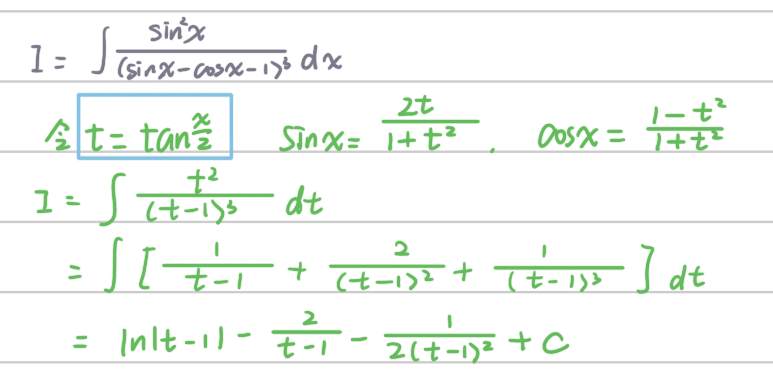 I = ∫ sin²x / (sinx - cosx - 1)³ dx
令 t = tan x/2 sinx = 2t / 1+t² . cosx = 1-t² / 1+t²
I = ∫ t² / (t-1)³ dt
= ∫ [ 1 / t-1 + 2 / (t-1)² + 1 / (t-1)³ ] dt
= ln|t-1| - 2 / t-1 - 1 / 2(t-1)² + C